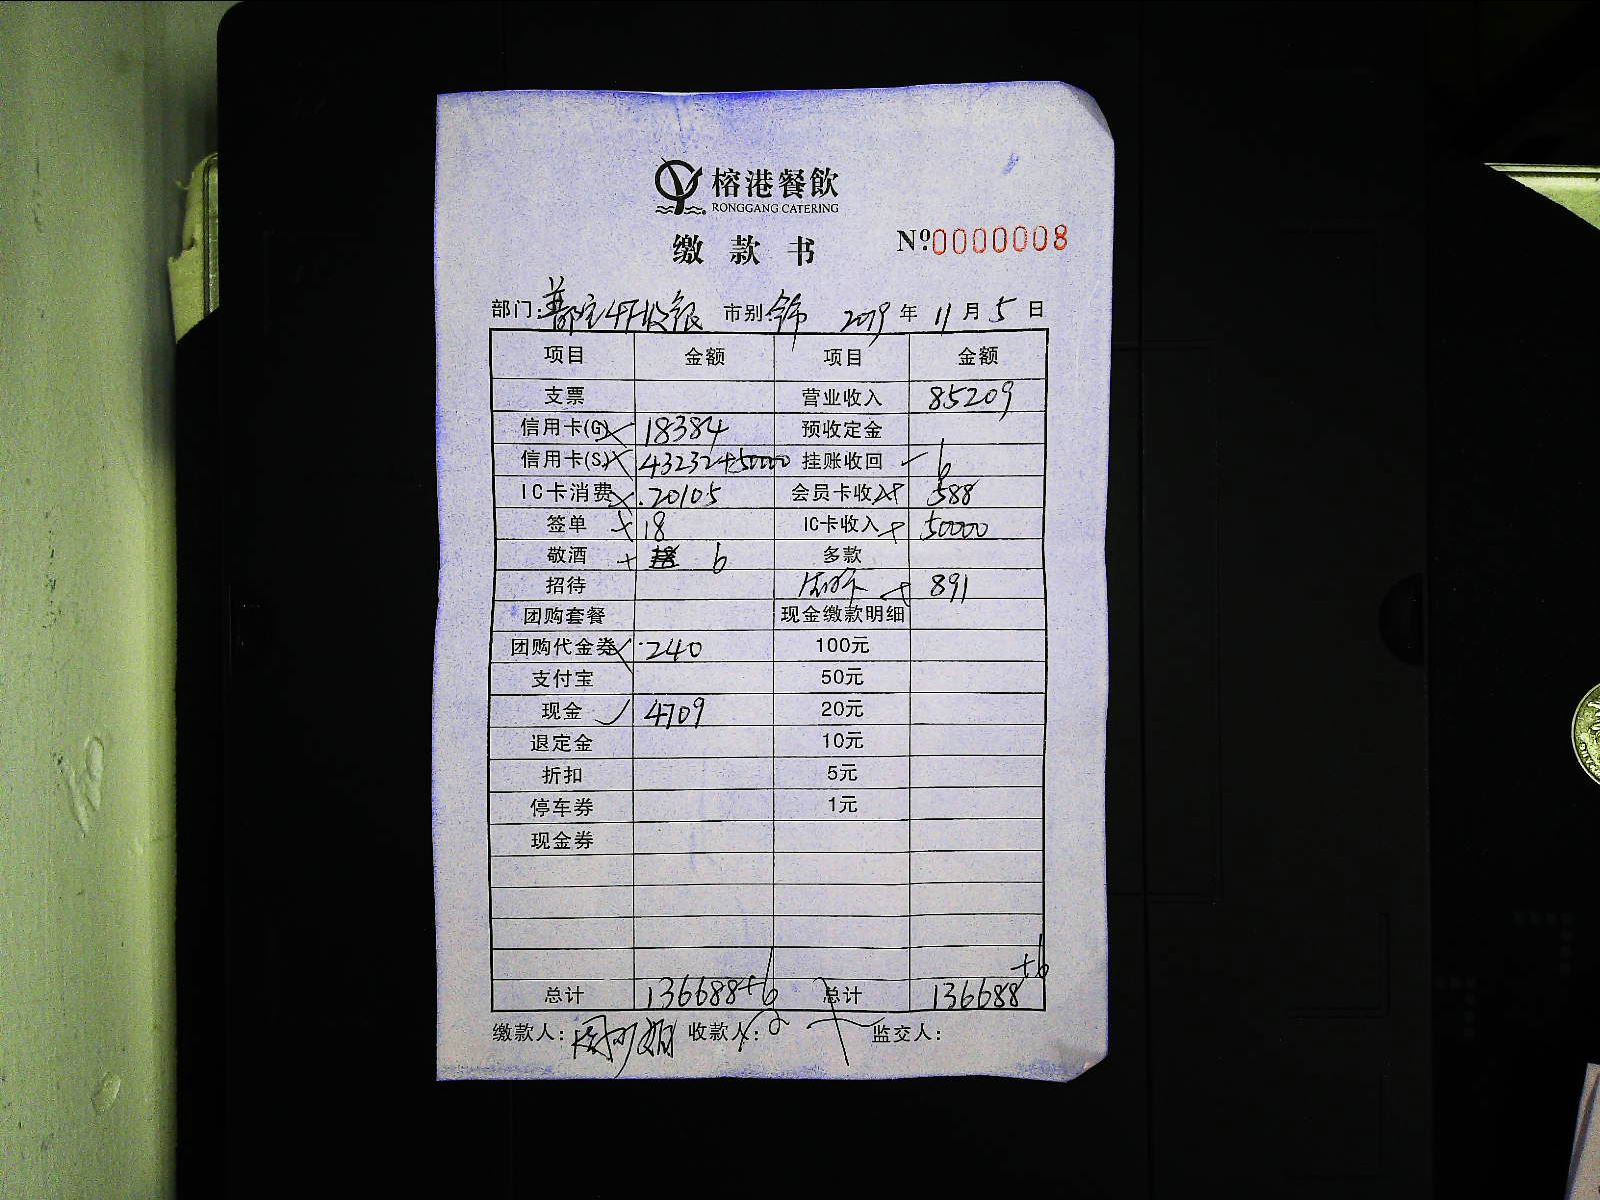 榕港餐飲
RONGGANG CATERING
缴款书
Nº0000008
部门: 市别: 2019年11月5日
项目 金额 项目 金额
支票 营业收入 85209
信用卡(G) 18384 预收定金
信用卡(S) 43232+50000 挂账收回 6
IC卡消费 20105 会员卡收入 588
签单 18 IC卡收入 50000
敬酒 6 多款
招待 891
团购套餐 现金缴款明细
团购代金券 240 100元
支付宝 50元
现金 4709 20元
退定金 10元
折扣 5元
停车券 1元
现金券
总计 136688+6 总计 136688+6
缴款人: 收款人: 监交人: